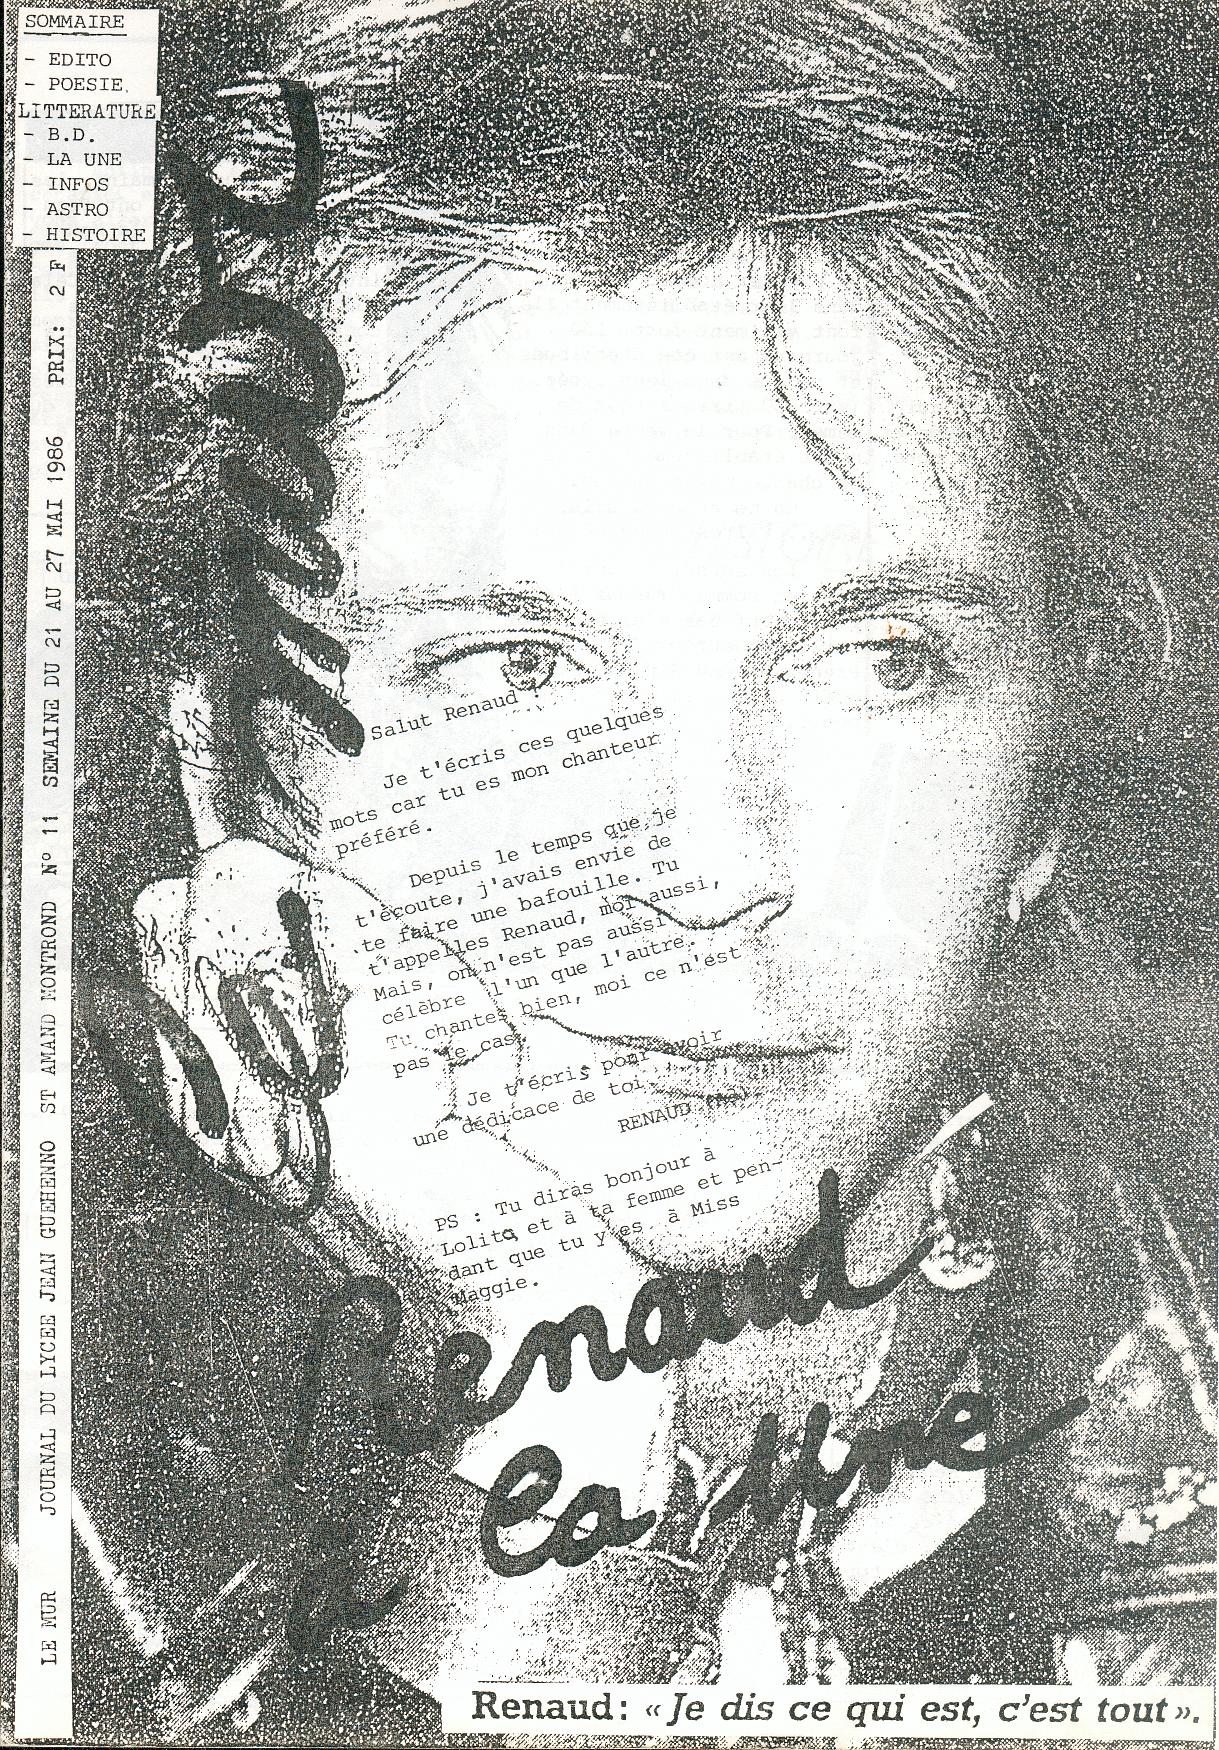 SOMMAIRE
- EDITO
- POESIE
LITTERATURE
- B.D.
- LA UNE
- INFOS
- ASTRO
- HISTOIRE
LE MUR JOURNAL DU LYCEE JEAN GUEHENNO ST AMAND MONTROND N° 11 SEMAINE DU 21 AU 27 MAI 1986 PRIX: 2 F
Salut Renaud
Je t'écris ces quelques
mots car tu es mon chanteur
préféré.
Depuis le temps que je
t'écoute, j'avais envie de
te faire une bafouille. Tu
t'appelles Renaud, moi aussi,
Mais, on n'est pas aussi
célèbre l'un que l'autre.
Tu chantes bien, moi ce n'est
pas le cas.
Je t'écris pour avoir
une dédicace de toi.
RENAUD
PS : Tu diras bonjour à
Lolita et à ta femme et pen-
dant que tu y es à Miss
Maggie.
Renaud
à la Une
Renaud: «Je dis ce qui est, c'est tout».